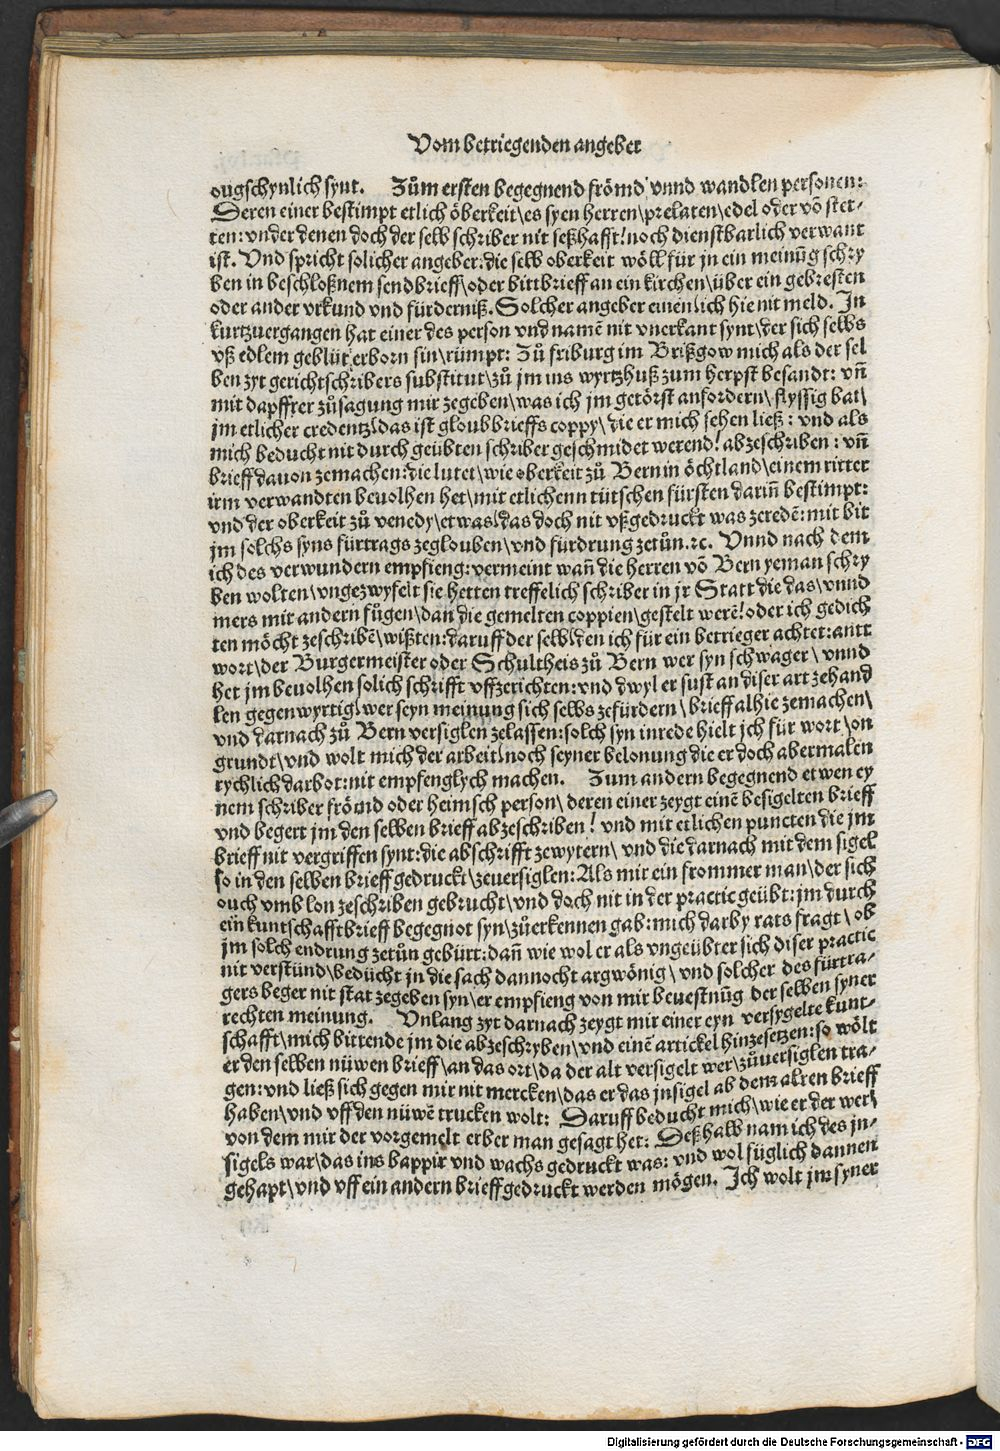 Vom betriegenden angeber
ougschynlich synt. Zům ersten begegnend frömd vnnd wandlen personen:
Deren einer bestimpt etlich öberkeit\es syen herren\prelaten\edel oder võ stet-
ten: vnder denen doch der selb schriber nit seßhafft! noch dienstbarlich verwant
ist. Vnd spricht solicher angeber: die selb oberkeit wöll für jn ein meinũg schry
ben in beschloßnem sendbrieff\oder bittbrieff an ein kirchen\über ein gebresten
oder ander vrkund vnd fürderniß. Solcher angeber einen\ich hie nit meld. In
kurtzuergangen hat einer des person vnd namẽ nit vnerkant synt\der sich selbs
vß edlem geblüt erborn sin\rümpt: Zů friburg im Brißgow mich als der sel
ben zyt gerichtschribers substitut\zů jm ins wyrtzhuß zum herpst besandt: vñ
mit dapffrer zůsagung mir zegeben\was ich jm getörst anfordern\ flyssig bat\
jm etlicher credentz\das ist gloubbrieffs coppy\ die er mich sehen ließ: vnd als
mich beducht nit durch geübten schriber geschmidet werend! abzeschriben: vñ
brieff dauon zemachen: die lutet\wie oberkeit zů Bern in öchtland\einem ritter
irm verwandten beuolhen het\mit etlichenn tütschen fürsten dariñ bestimpt:
vnd der oberkeit zů venedy\etwas\das doch nit vßgedruckt was zeredẽ: mit bit
jm solchs syns fürtrags zeglouben\vnd fürdrung zetůn.ꝛc. Vnnd nach dem
ich des verwundern empfieng: vermeint wañ die herren võ Bern yeman schry
ben wolten\vngezwyfelt sie hetten treffelich schriber in jr Statt die das\vnnd
mers mit andern fůgen\dan die gemelten coppien\gestelt werẽ! oder ich gedich
ten möcht zeschribẽ\wißten: daruff der selb\den ich für ein betrieger achtet: antt
wort\der Burgermeister oder Schultheis zů Bern wer syn schwager\ vnnd
het jm beuolhen solich schrifft vffzerichten: vnd dwyl er sust an diser art zehand
len gegenwyrtig\wer seyn meinung sich selbs zefürdern\ brieff alhie zemachen\
vnd darnach zů Bern versiglen zelassen: solch syn inrede hielt jch für wort\on
grundt\vnd wolt mich der arbeit\noch seyner belonung die er doch abermalen
rychlich darbot: nit empfenglych machen. Zum andern begegnend etwen ey
nem schriber frömd oder heimsch person\ deren einer zeygt einẽ besigelten brieff
vnd begert jm den selben brieff abzeschriben! vnd mit etlichen puncten die jm
brieff nit vergriffen synt: die abschrifft zewytern\ vnd die darnach mit dem sigel
so in den selben brieff gedruckt\zeuersiglen: Als mir ein frommer man\der sich
ouch vmb lon zeschriben gebrucht\vnd doch nit in der practic geübt: jm durch
ein kuntschafftbrieff begegnot syn\zůerkennen gab: mich darby rats fragt\ ob
jm solch endrung zetůn gebürt: dañ wie wol er als vngeübter sich diser practic
nit verstünd\bedücht jn die sach dannocht argwönig\ vnd solcher des fürtra-
gers beger nit stat zegeben syn\er empfieng von mir beuestnũg der selben syner
rechten meinung. Vnlang zyt darnach zeygt mir einer eyn versygelte kunt-
schafft\mich bittende jm die abzeschryben\vnd einẽ artickel hinzesetzen: so wölt
er den selben nüwen brieff\an das ort\da der alt versigelt wer\zůuersiglen tra-
gen: vnd ließ sich gegen mir nit mercken\das er das insigel ab dem alten brieff
haben\vnd vff den nüwẽ trucken wolt: Daruff beducht mich\wie er der wer\
von dem mir der vorgemelt erber man gesagt het: Deßhalb nam ich des jn-
sigels war\das ins bappir vnd wachs gedruckt was: vnd wol füglich dannen
gehapt\vnd vff ein andern brieff gedruckt werden mögen. Ich wolt jm syner
Digitalisierung gefördert durch die Deutsche Forschungsgemeinschaft - DFG